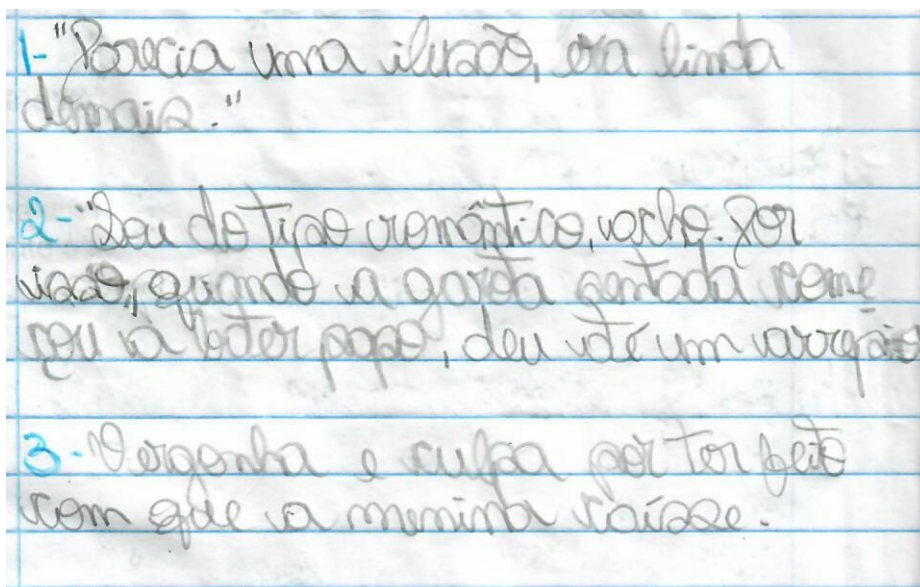 1-"Parecia uma ilusão, era linda
demais."
2-"Sou do tipo romântico, acho. Por
isso, quando a garota sentada come
çou a bater papo, deu até um arrepio
3-Vergonha e culpa por ter feito
com que a menina caísse.